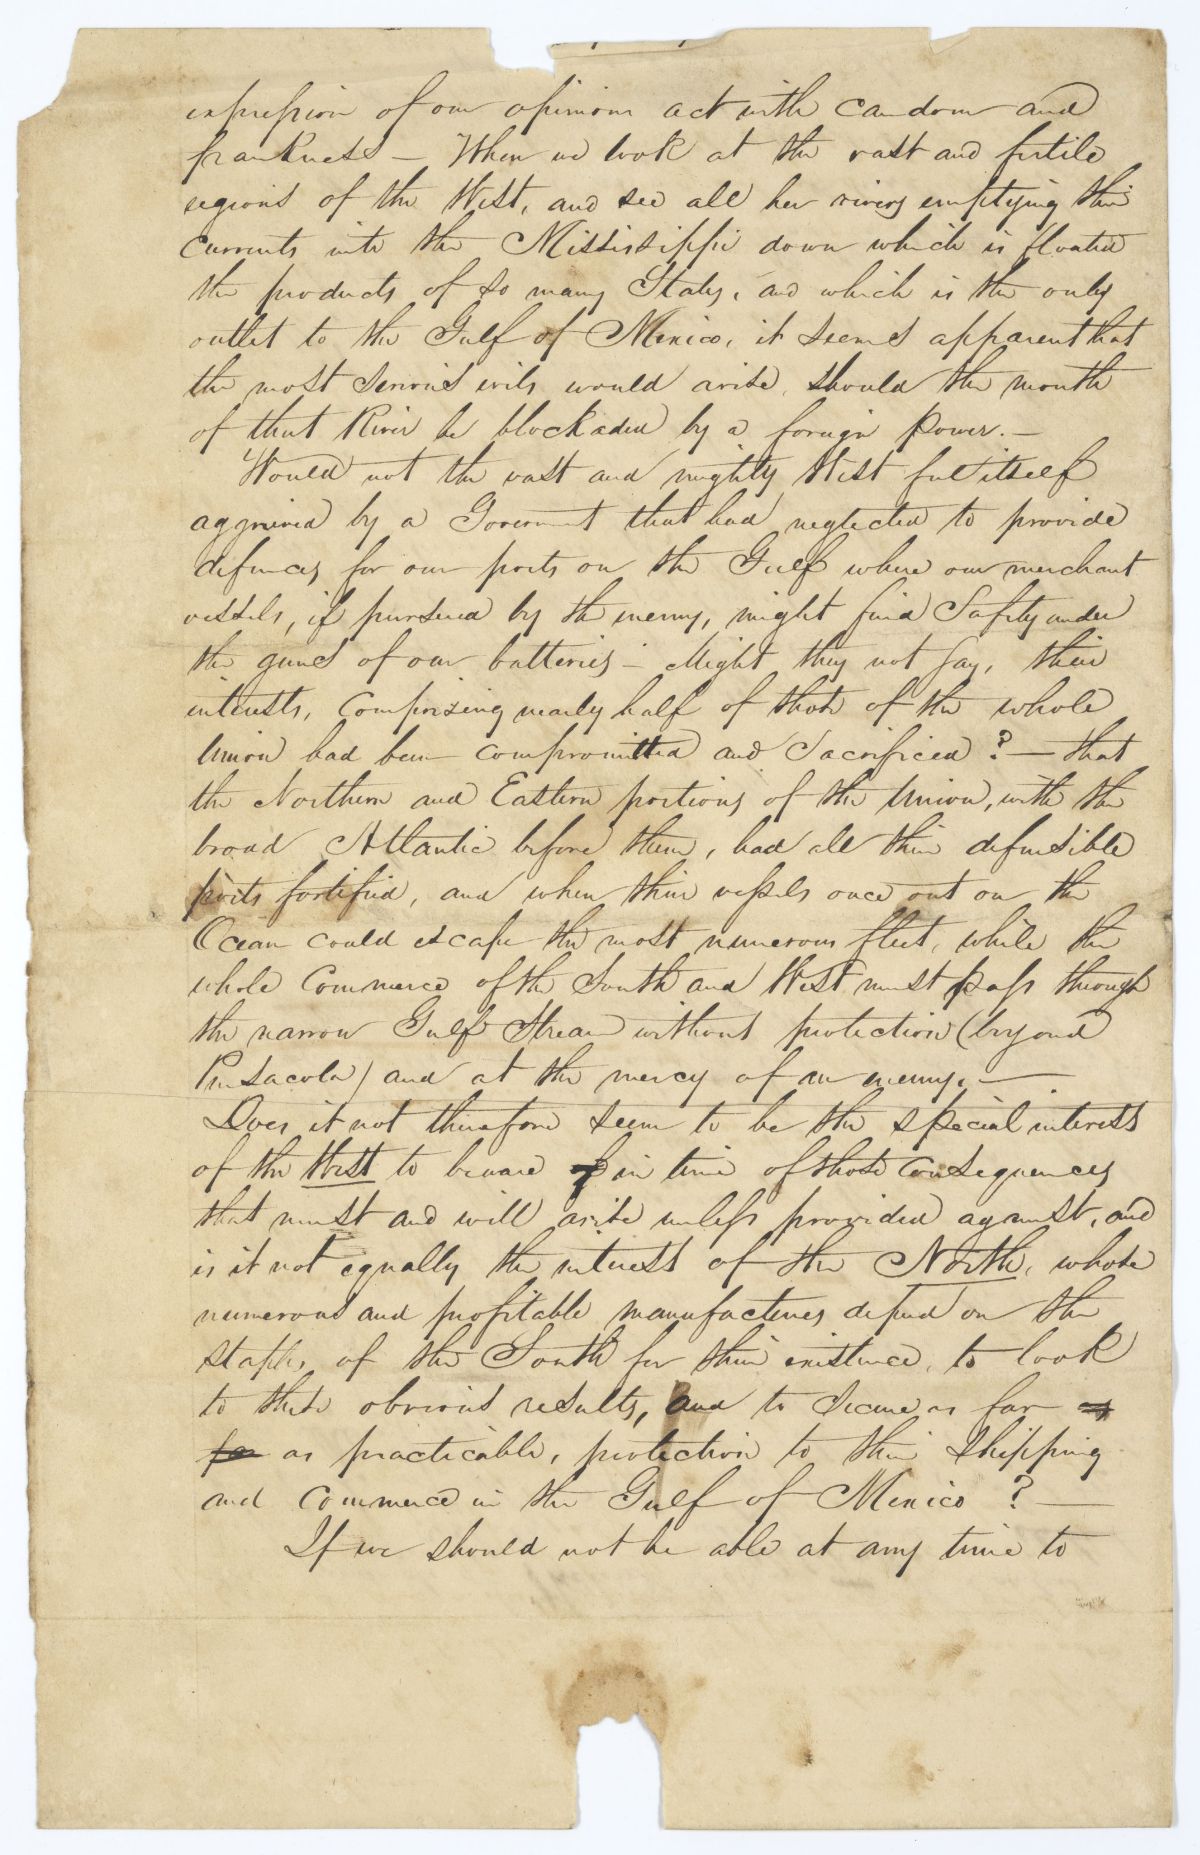 expression of our opinions act with candour and
frankness — When we look at the vast and fertile
regions of the West, and see all her rivers emptying their
currents into the Mississippi down which is floated
the products of so many States, and which is the only
outlet to the Gulf of Mexico, it seems apparent that
the most serious evils would arise, should the mouth
of that River be blockaded by a foreign power. —
Would not the vast and mighty West feel itself
aggrieved by a Goverment that had neglected to provide
defences for our ports on the Gulf where our merchant
vessels, if pursued by the enemy, might find safety under
the guns of our batteries — Might they not say, their
interests, comprizing nearly half of those of the whole
Union had been committed and sacrificed ? — that
the Northern and Eastern portions of the Union, with the
broad Atlantic before them, had all their defensible
ports fortified, and when their vessels once out on the
Ocean could escape the most numerous fleet, while the
whole Commerce of the South and West must pass through
the narrow Gulf Stream without protection (beyond
Pensacola) and at the mercy of an enemy. —
Does it not therefore seem to be the special interest
of the West to beware in time of those consequences
that must and will arise unless provided against, and
is it not equally the interest of the North, whose
numerous and profitable manufactures depend on the
staples of the South for their existence, to look
to these obvious results, and to secure as far as
far as practicable, protection to their shipping
and commerce in the Gulf of Mexico ? —
If we should not be able at any time to